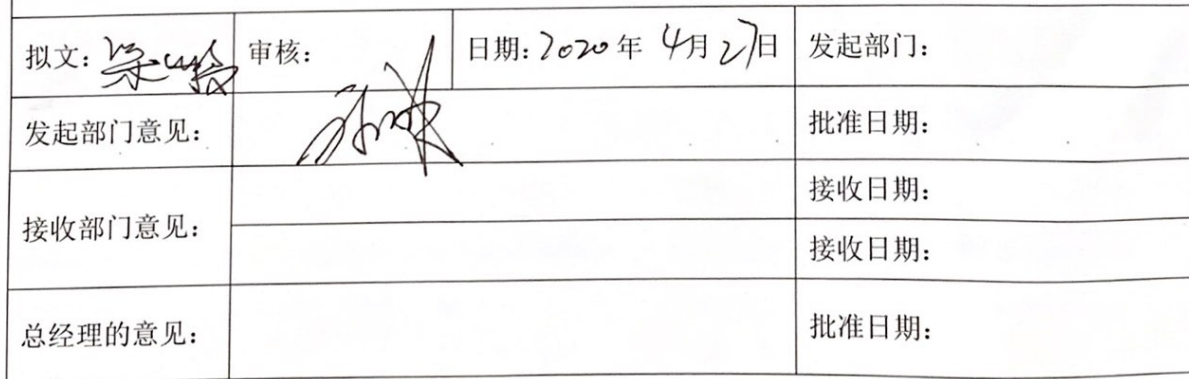 拟文: 审核: 日期:2020年 4月27日 发起部门:
发起部门意见: 批准日期:
接收部门意见: 接收日期:
接收日期:
总经理的意见: 批准日期: